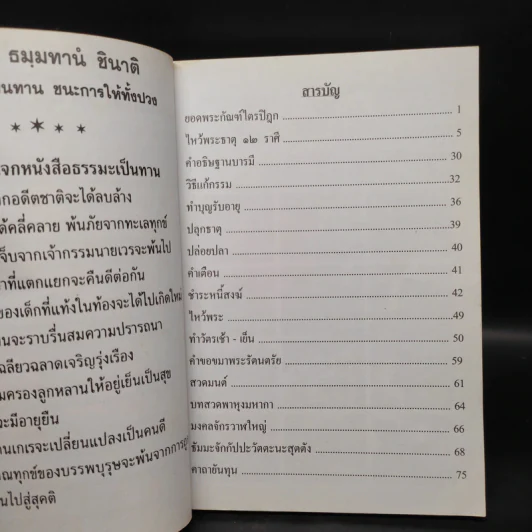 ธมฺมทานํ ชินาติ
ทาน ชนะการให้ทั้งปวง
แจกหนังสือธรรมะเป็นทาน
กอดีตชาติจะได้ลบล้าง
คลี่คลาย พ้นภัยจากทะเลทุกข์
เจ็บจากเจ้ากรรมนายเวรจะพ้นไป
ที่แตกแยกจะคืนดีต่อกัน
ของเด็กที่แท้งในท้องจะได้ไปเกิดใหม่
จะราบรื่นสมความปรารถนา
เฉลียวฉลาดเจริญรุ่งเรือง
ครองลูกหลานให้อยู่เย็นเป็นสุข
จะมีอายุยืน
เกเรจะเปลี่ยนแปลงเป็นคนดี
ทุกข์ของบรรพบุรุษจะพ้นจากการ
ไปสู่สุคติ
สารบัญ
ยอดพระกัณฑ์ไตรปิฎก 1
ไหว้พระธาตุ ๑๒ ราศี 5
คำอธิษฐานบารมี 30
วิธีแก้กรรม 32
ทำบุญรับอายุ 36
ปลุกธาตุ 39
ปล่อยปลา 40
คำเตือน 41
ชำระหนี้สงฆ์ 42
ไหว้พระ 49
ทำวัตรเช้า - เย็น 50
คำขอขมาพระรัตนตรัย 59
สวดมนต์ 61
บทสวดพาหุงมหากา 64
มงคลจักรวาฬใหญ่ 66
ธัมมะจักกัปปะวัตตะนะสุตตัง 68
คาถายันทุน 75